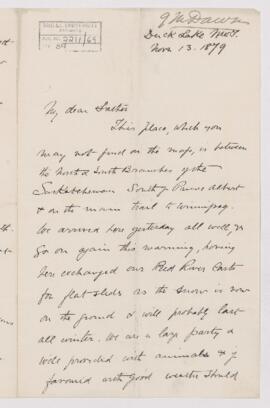 G M Dawson
McGILL UNIVERSITY
ARCHIVES
ACC. NO. 2211/69
REF. 54
Duck Lake NWT.
Nov. 13. 1879
My dear Father
This place, which you
may not find on the map, is between
the North & South Branches of the
Saskatchewan South of Prince Albert
& on the main trail to Winnipeg.
We arrived here yesterday all well, &
go on again this morning, having
here exchanged our Red River Carts
for flat sleds as the snow is now
on the ground & will probably last
all winter. We are a large party &
well provided with animals & if
favoured with good weather should